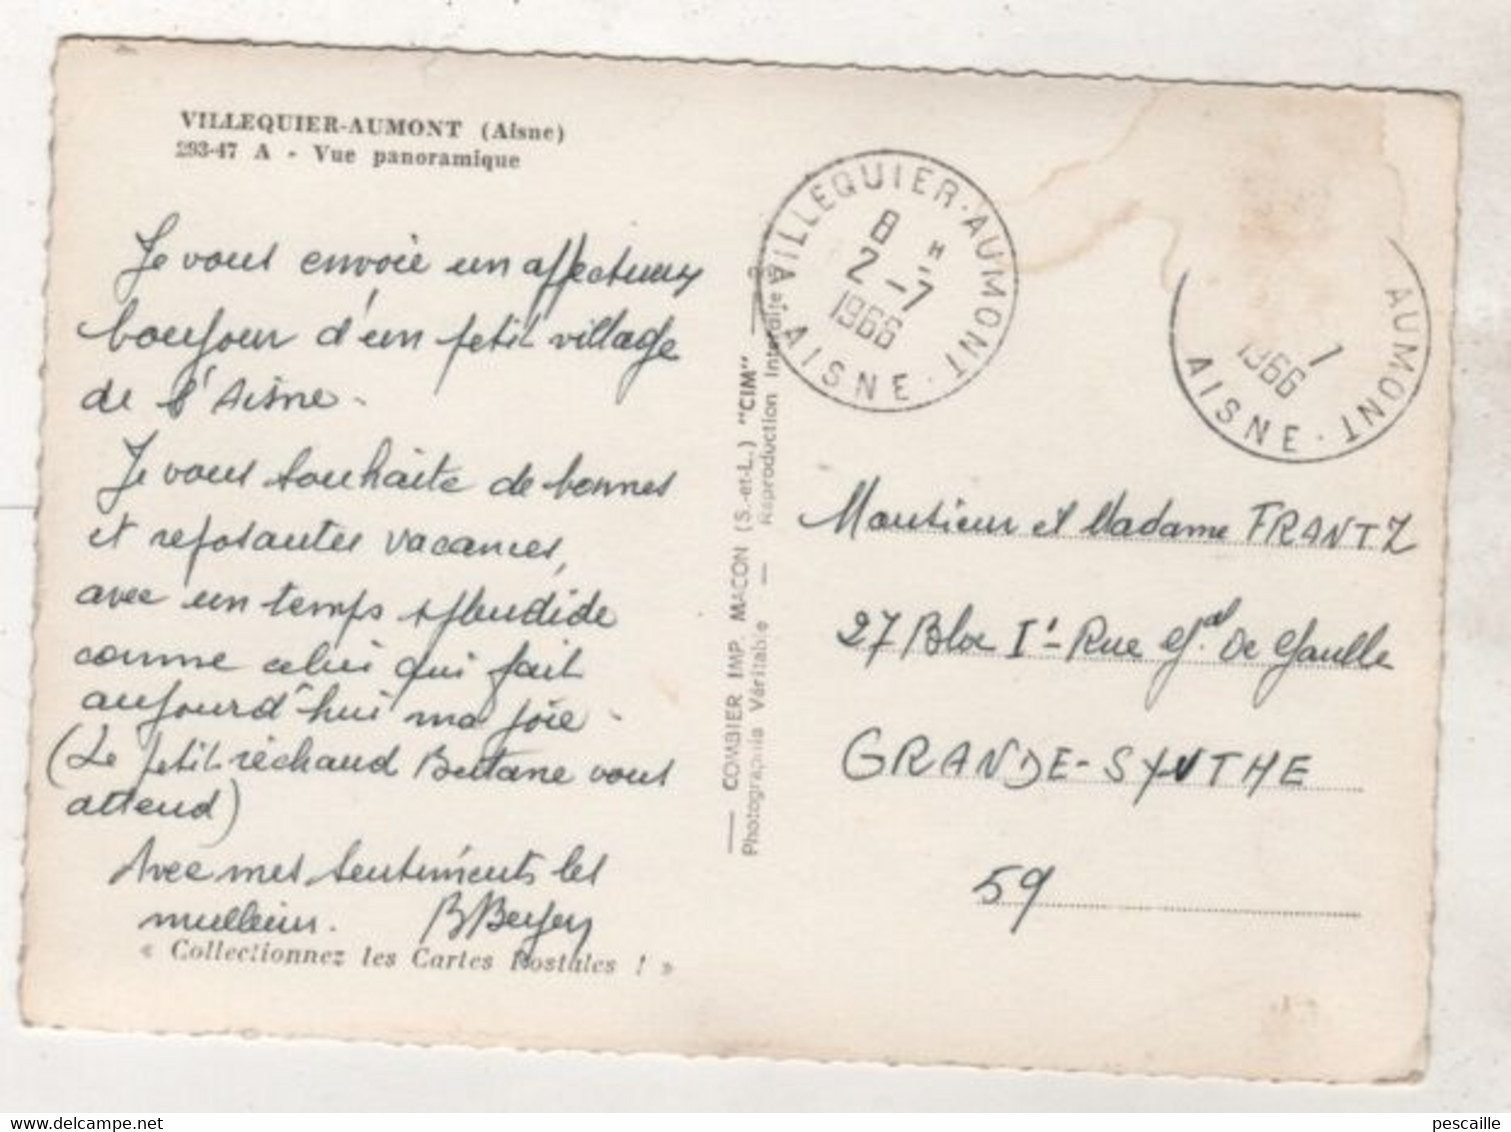 VILLEQUIER-AUMONT (Aisne)
293-47 A - Vue panoramique
Je vous envoie un affectueux
bonjour d'un petit village
de l'Aisne.
Je vous souhaite de bonnes
et reposantes vacances,
avec un temps splendide
comme celui qui fait
aujourd'hui ma joie.
(Le petit réchaud Butane vous
attend)
Avec mes sentiments les
meilleurs.
« Collectionnez les Cartes Postales ! »
COMBIER IMP. MACON (S.-et-L.) "CIM"
Photographie Véritable — Reproduction Interdite
VILLEQUIER-AUMONT
8 H
2-7
1966
AISNE
AUMONT
7
1966
AISNE
Monsieur et Madame FRANTZ
27 Bloc I - Rue Gal De Gaulle
GRANDE-SYNTHE
59
pescaille